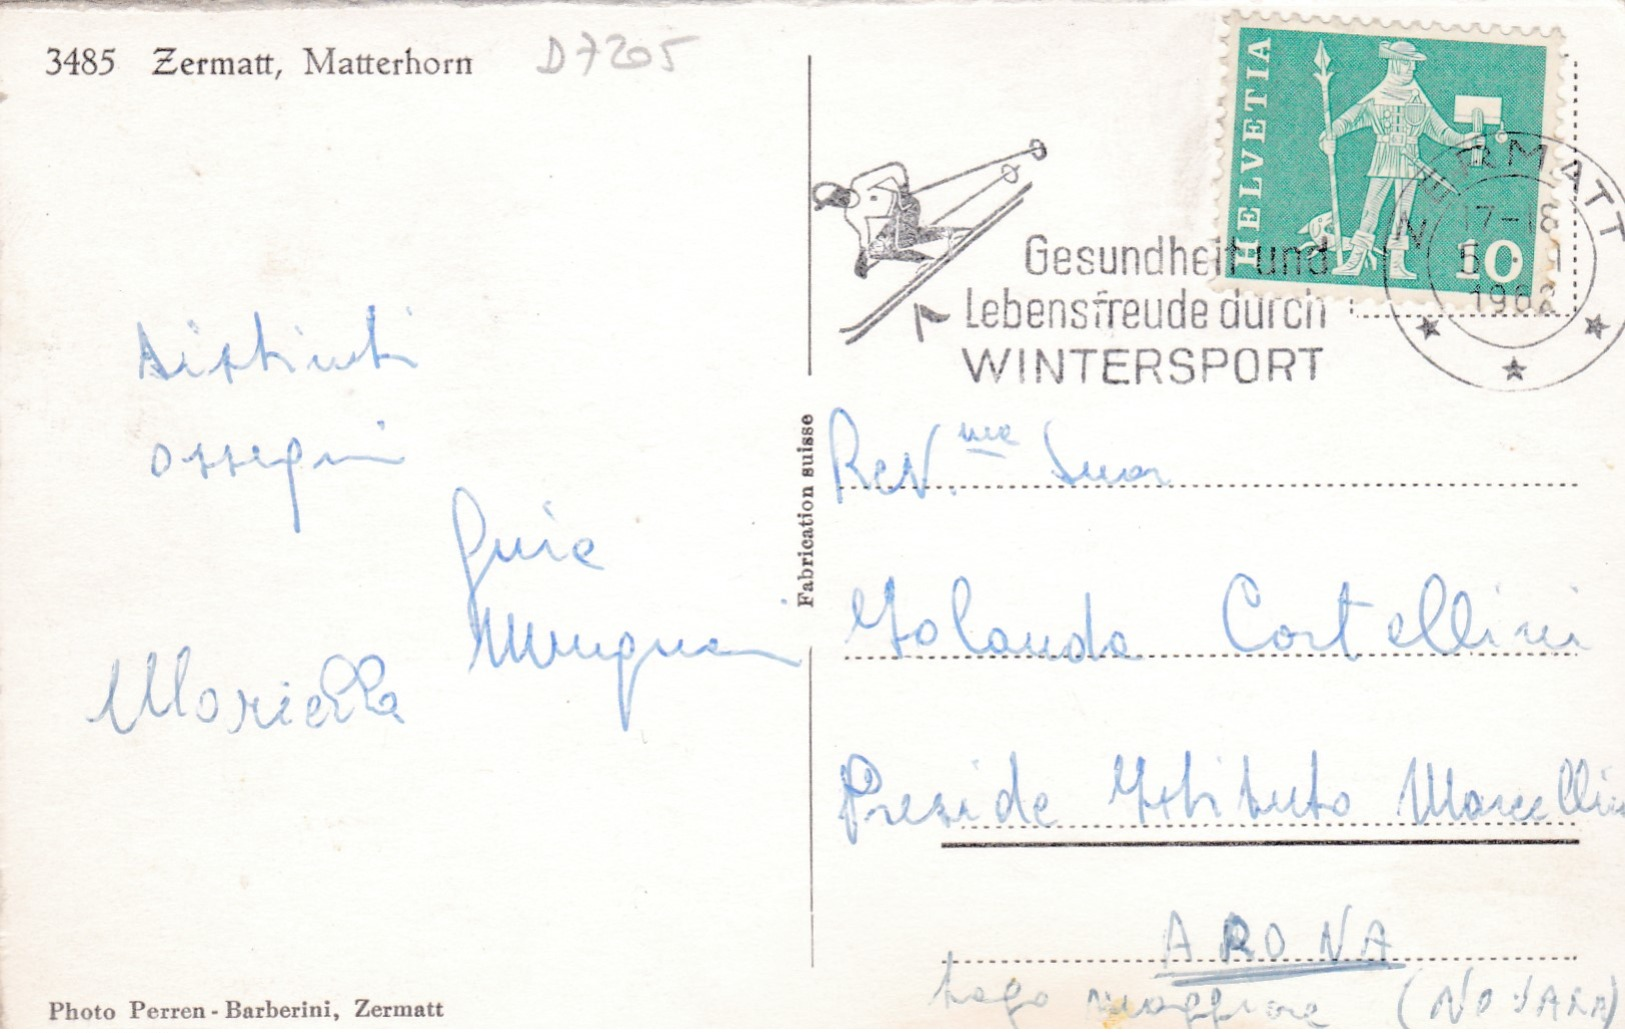 3485 Zermatt, Matterhorn
D7205
HELVETIA
10
ZERMATT
17-18
1962
Gesundheit und
Lebensfreude durch
WINTERSPORT
Distinti
ossequi
Mariella
Fabrication suisse
Rev.ma Suor
Yolanda Cortellini
Preside Istituto Marcelline
ARONA
Lago Maggiore (NOVARA)
Photo Perren-Barberini, Zermatt